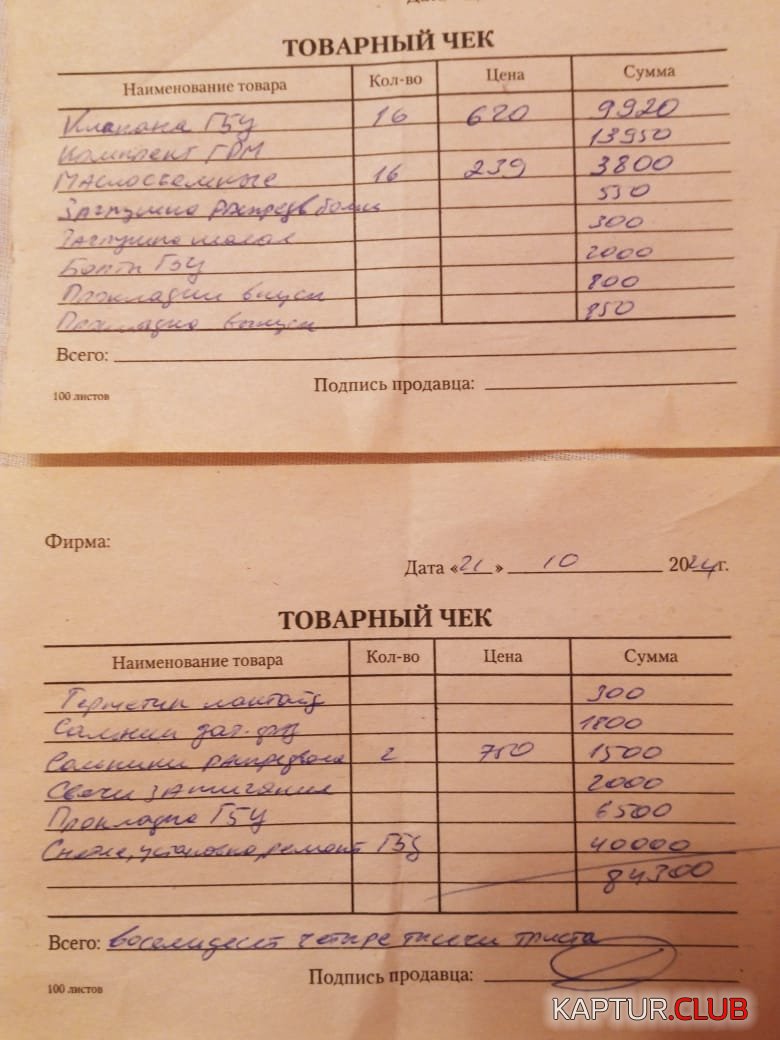 ТОВАРНЫЙ ЧЕК
Наименование товара Кол-во Цена Сумма
Клапана ГБЦ 16 620 9920
Комплект ГРМ 13950
Маслосъемные 16 239 3800
Заглушка распредв больш 550
Заглушка малая 300
Болты ГБЦ 2000
Прокладки впуск 800
Прокладка выпуск 850
Всего:
Подпись продавца:
100 листов
Фирма:
Дата «21» 10 2024г.
ТОВАРНЫЙ ЧЕК
Наименование товара Кол-во Цена Сумма
Герметик 300
1800
Сальники распредвала 2 750 1500
Свечи зажигания 2000
Прокладка ГБЦ 6500
Снятие, установка, ремонт ГБЦ 40000
84300
Всего: восемьдесят четыре тысячи триста
Подпись продавца:
100 листов
KAPTUR.CLUB